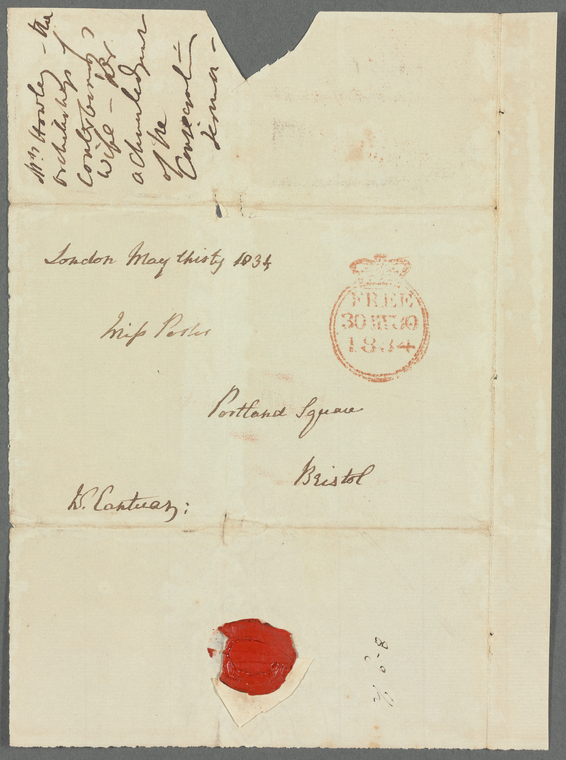 Mrs Howley – the
archbishop of
Canterbury's
wife – her
acknowledgment
of the
Consecration
Sermon –
London May thirty 1834
FREE
30 MY 30
1834
Miss Porter
Portland Square
Bristol
W. Cantuar: